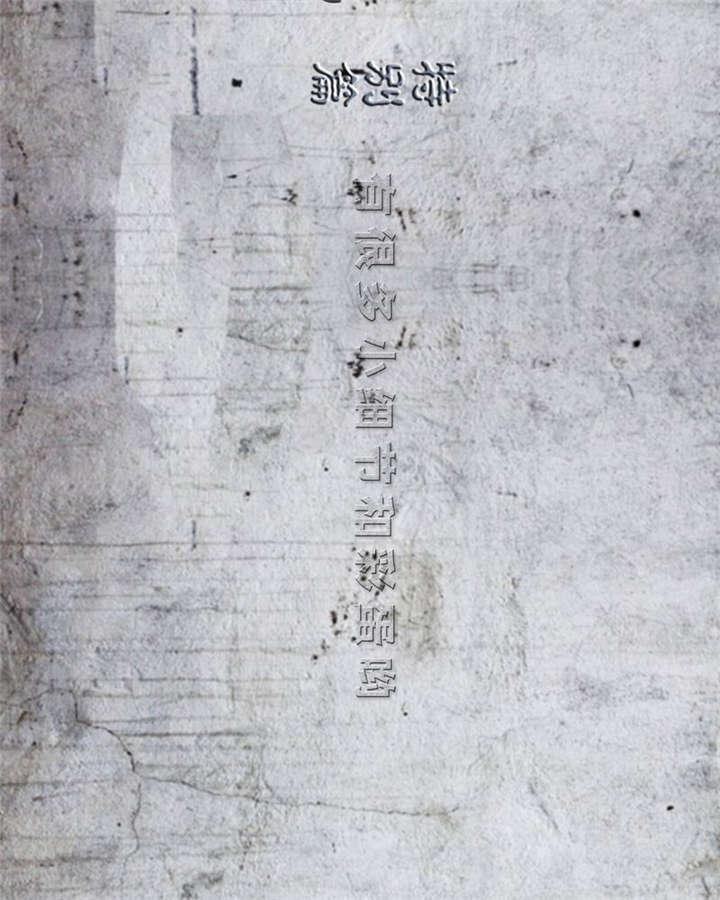 特别篇
有很多小细节和彩蛋呦